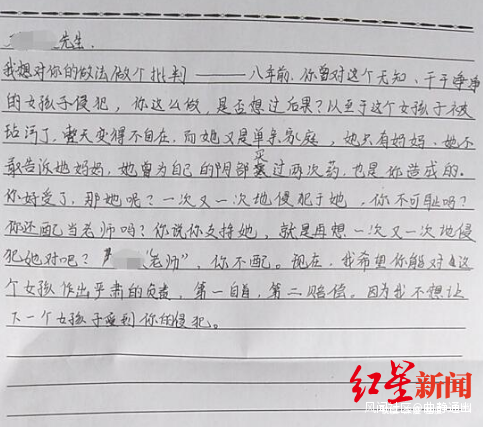 先生.
我想对你的做法做个批判——八年前.你曾对这个无知、干干净净
的女孩子侵犯，你这么做，是否想过后果？以至于这个女孩子被
玷污了，整天变得不自在.而她又是单亲家庭，她只有妈妈、她不
敢告诉她妈妈，她曾为自己的阴部买过两次药，也是你造成的.
你好受了，那她呢？一次又一次地侵犯于她，你不可耻吗？
你还配当老师吗？你说你支持她，就是再想一次又一次地侵
犯她对吧？“老师”，你不配。现在，我希望你能对这
个女孩作出严肃的负责，第一自首，第二赔偿。因为我不想让
下一个女孩子受到你的侵犯。
红星新闻